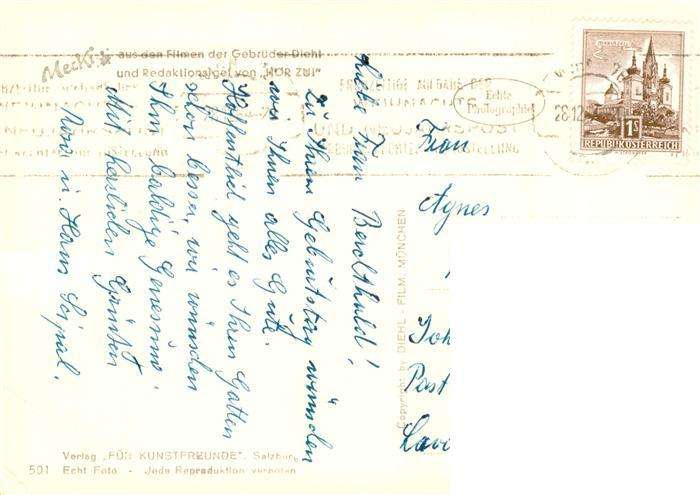 Mecki
aus den Filmen der Gebrüder Diehl
und Redaktionsigel von "HÖR ZU!"
Echte
Fotographie
28.12
1S
REPUBLIK ÖSTERREICH
UND NEUJAHRSPOST
Liebe Frau Berchthald!
Zu Ihrem Geburtstag wünschen
wir Ihnen alles Gute.
Hoffentlich geht es Ihren Gatten
schon besser, wir wünschen
Ihm baldige Genesung.
Mit herzlichen Grüßen
u. Hans
Frau
Agnes
Joh
Post
Lava
Copyright by DIEHL - FILM, MÜNCHEN
Verlag "FÜR KUNSTFREUNDE", Salzburg
501 Echt Foto - Jede Reproduktion verboten